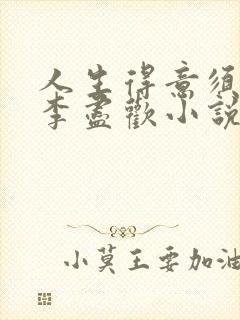 人生得意须
李盡歡小說
小莫王要加油